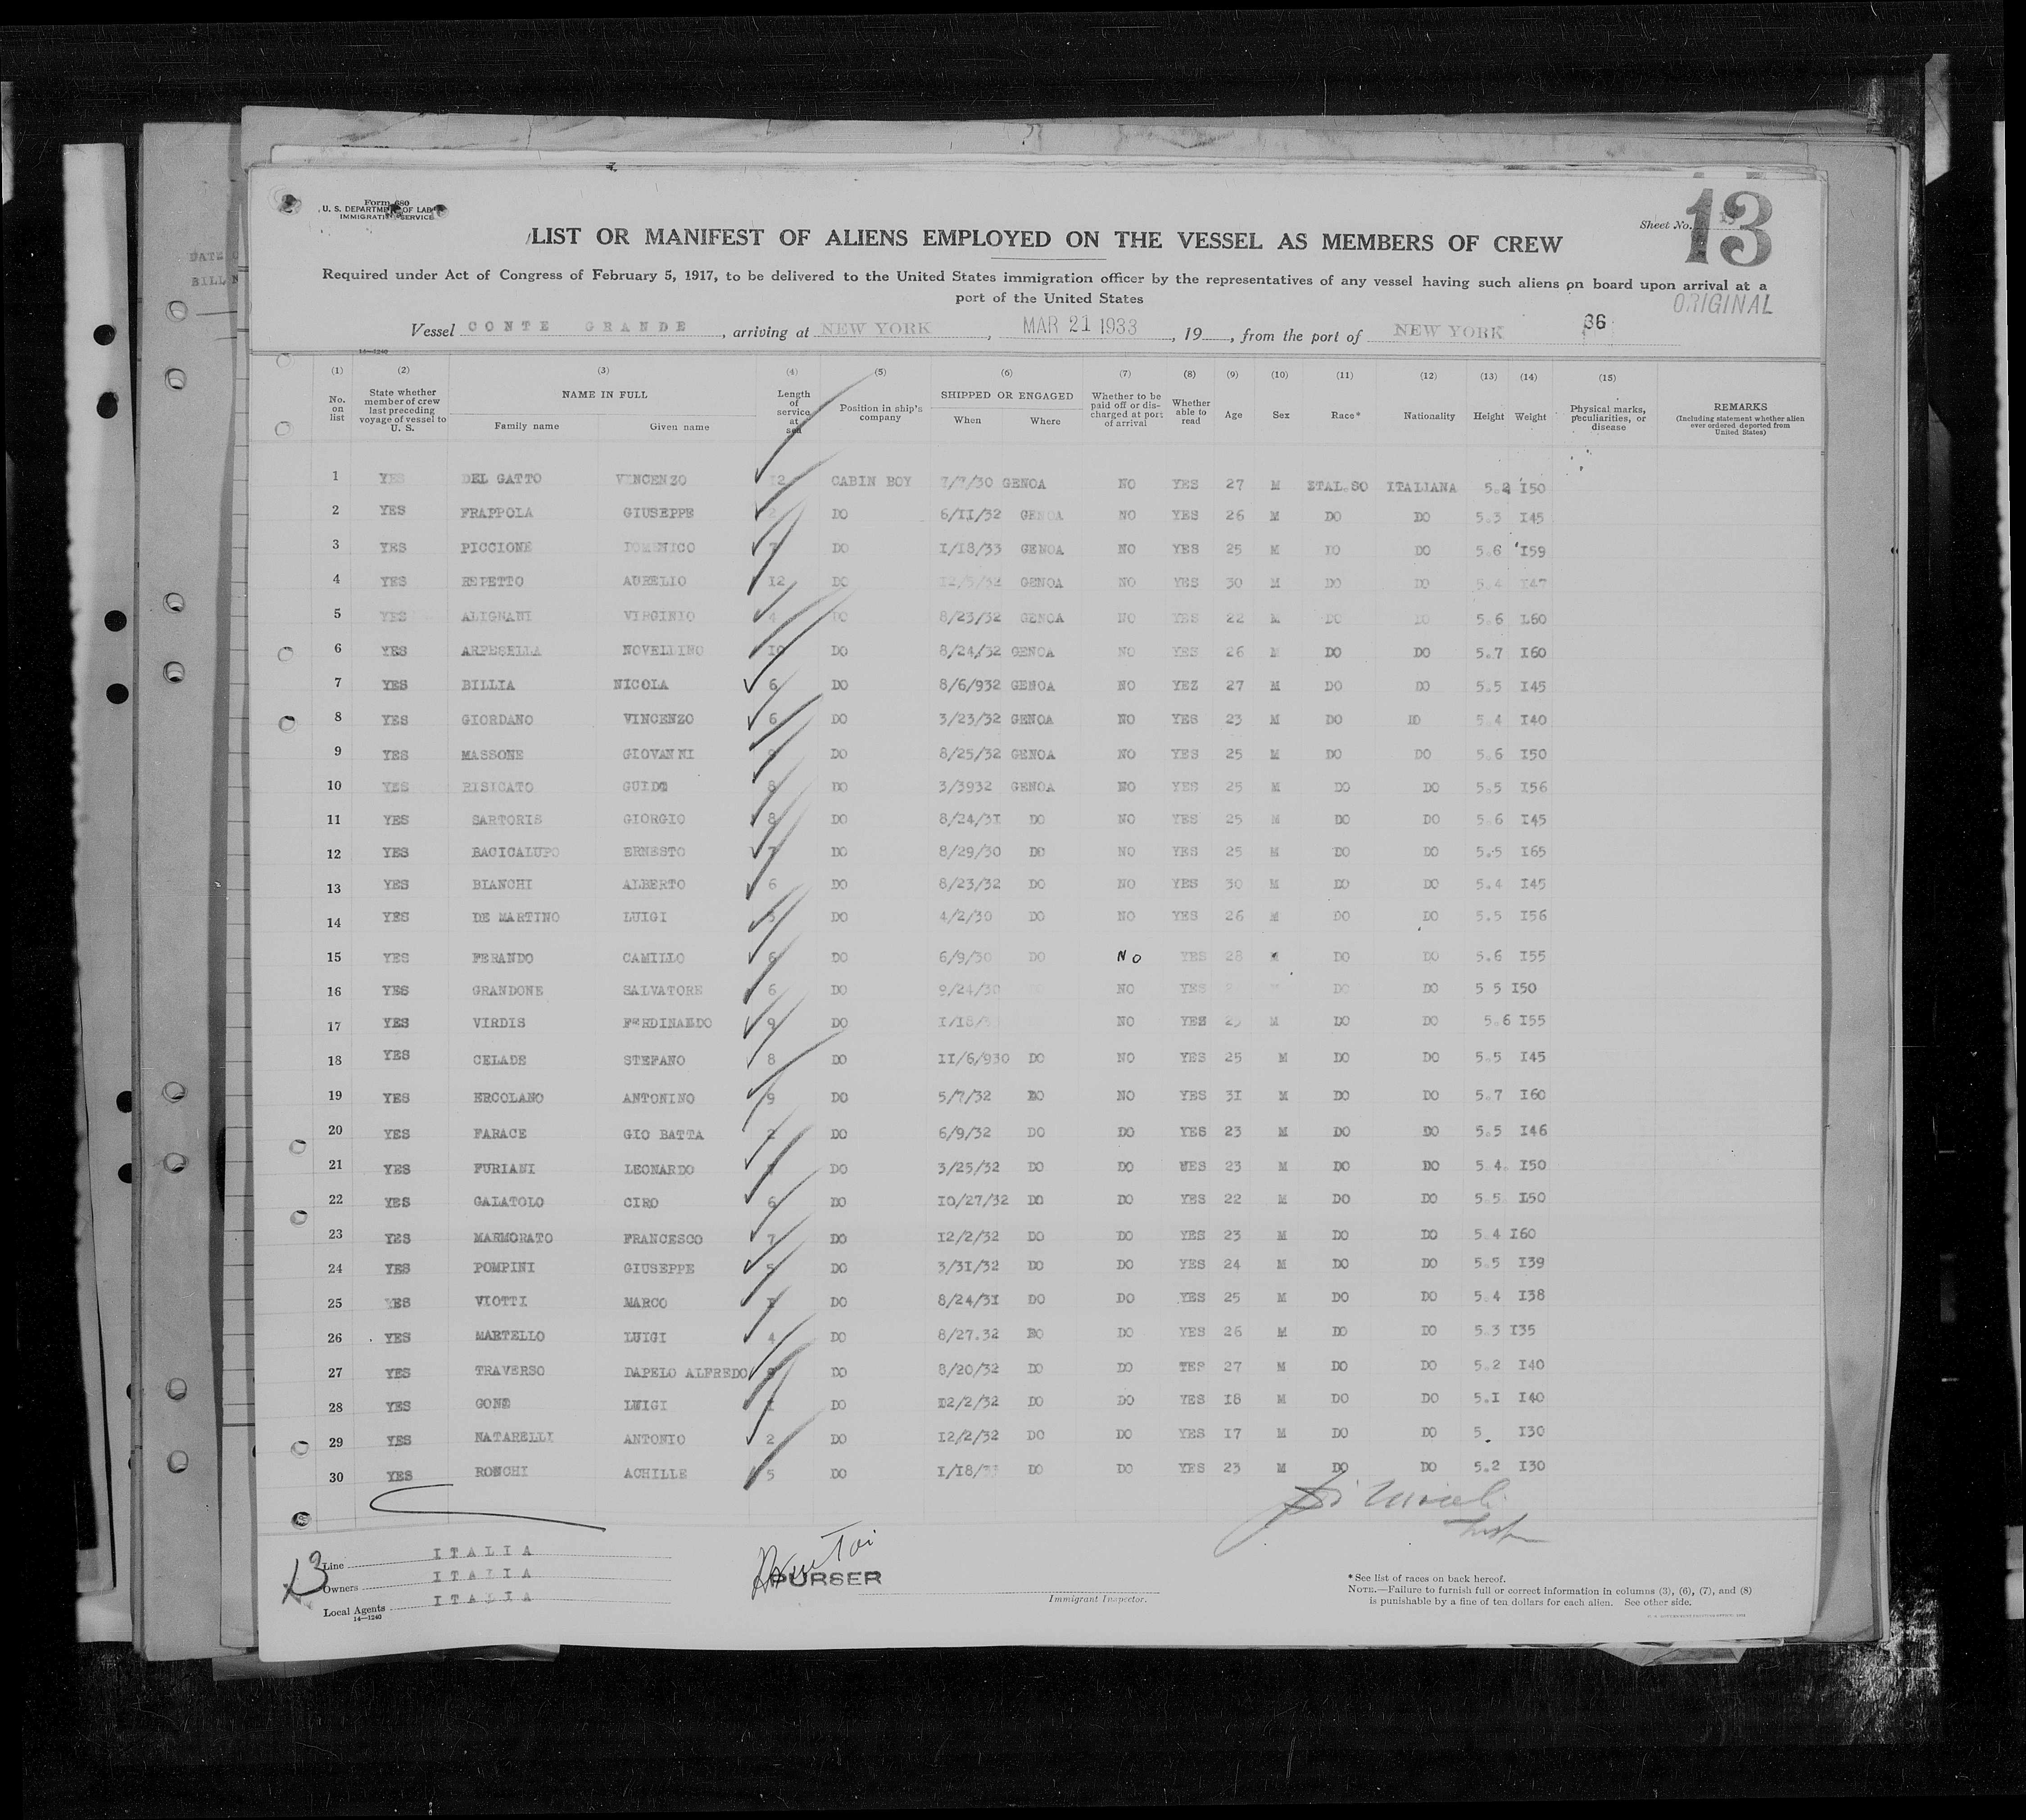 DATE
BILL N
Form 680
U. S. DEPARTMENT OF LABOR
IMMIGRATION SERVICE
Sheet No. 13
LIST OR MANIFEST OF ALIENS EMPLOYED ON THE VESSEL AS MEMBERS OF CREW
Required under Act of Congress of February 5, 1917, to be delivered to the United States immigration officer by the representatives of any vessel having such aliens on board upon arrival at a
port of the United States
ORIGINAL
Vessel CONTE GRANDE, arriving at NEW YORK, MAR 21 1933, 19, from the port of NEW YORK 36
14—1240
(1) (2) (3) (4) (5) (6) (7) (8) (9) (10) (11) (12) (13) (14) (15)
No. on list State whether member of crew last preceding voyage of vessel to U. S. NAME IN FULL Family name Given name Length of service at sea Position in ship's company SHIPPED OR ENGAGED When Where Whether to be paid off or discharged at port of arrival Whether able to read Age Sex Race* Nationality Height Weight Physical marks, peculiarities, or disease REMARKS (Including statement whether alien ever ordered deported from United States)
1 YES DEL GATTO VINCENZO 12 CABIN BOY 7/7/30 GENOA NO YES 27 M ITAL.SO ITALIANA 5.2 I50
2 YES FRAPPOLA GIUSEPPE DO 6/II/32 GENOA NO YES 26 M DO DO 5.3 I45
3 YES PICCIONE DOMENICO 7 DO I/I8/33 GENOA NO YES 25 M DO DO 5.6 I59
4 YES REPETTO AURELIO I2 DO I2/5/32 GENOA NO YES 30 M DO DO 5.4 I47
5 YES ALIGNANI VIRGINIO 4 DO 8/23/32 GENOA NO YES 22 M DO DO 5.6 I60
6 YES ARPESELLA NOVELLINO IO DO 8/24/32 GENOA NO YES 26 M DO DO 5.7 I60
7 YES BILLIA NICOLA 6 DO 8/6/932 GENOA NO YEZ 27 M DO DO 5.5 I45
8 YES GIORDANO VINCENZO 6 DO 3/23/32 GENOA NO YES 23 M DO DO 5.4 I40
9 YES MASSONE GIOVANNI DO 8/25/32 GENOA NO YES 25 M DO DO 5.6 I50
10 YES RISICATO GUIDO 8 DO 3/3932 GENOA NO YES 25 M DO DO 5.5 I56
11 YES SARTORIS GIORGIO 8 DO 8/24/3I DO NO YES 25 M DO DO 5.6 I45
12 YES BACICALUPO ERNESTO 7 DO 8/29/30 DO NO YES 25 M DO DO 5.5 I65
13 YES BIANCHI ALBERTO 6 DO 8/23/32 DO NO YES 30 M DO DO 5.4 I45
14 YES DE MARTINO LUIGI 5 DO 4/2/30 DO NO YES 26 M DO DO 5.5 I56
15 YES FERANDO CAMILLO 6 DO 6/9/30 DO NO YES 28 M DO DO 5.6 I55
16 YES GRANDONE SALVATORE 6 DO 9/24/30 NO YES DO DO 5 5 I50
17 YES VIRDIS FERDINANDO 9 DO I/I8/33 NO YES M DO DO 5.6 I55
18 YES CELADE STEFANO 8 DO II/6/930 DO NO YES 25 M DO DO 5.5 I45
19 YES ERCOLANO ANTONINO 9 DO 5/7/32 DO NO YES 3I M DO DO 5.7 I60
20 YES FARACE GIO BATTA 2 DO 6/9/32 DO DO YES 23 M DO DO 5.5 I46
21 YES FURIANI LEONARDO DO 3/25/32 DO DO WES 23 M DO DO 5.4. I50
22 YES GALATOLO CIRO 6 DO IO/27/32 DO DO YES 22 M DO DO 5.5 I50
23 YES MARMORATO FRANCESCO 7 DO I2/2/32 DO DO YES 23 M DO DO 5.4 I60
24 YES POMPINI GIUSEPPE 5 DO 3/3I/32 DO DO YES 24 M DO DO 5.5 I39
25 YES VIOTTI MARCO DO 8/24/3I DO DO YES 25 M DO DO 5.4 I38
26 YES MARTELLO LUIGI 4 DO 8/27.32 DO DO YES 26 M DO DO 5.3 I35
27 YES TRAVERSO DAPELO ALFREDO 9 DO 8/20/32 DO DO YES 27 M DO DO 5.2 I40
28 YES GONE LUIGI I DO I2/2/32 DO DO YES I8 M DO DO 5.I I40
29 YES NATARELLI ANTONIO 2 DO I2/2/32 DO DO YES I7 M DO DO 5. I30
30 YES RONCHI ACHILLE 5 DO I/I8/33 DO DO YES 23 M DO DO 5.2 I30
13
Line ITALIA
Owners ITALIA
Local Agents ITALIA
14—1240
PURSER
Immigrant Inspector.
*See list of races on back hereof.
NOTE.—Failure to furnish full or correct information in columns (3), (6), (7), and (8)
is punishable by a fine of ten dollars for each alien. See other side.